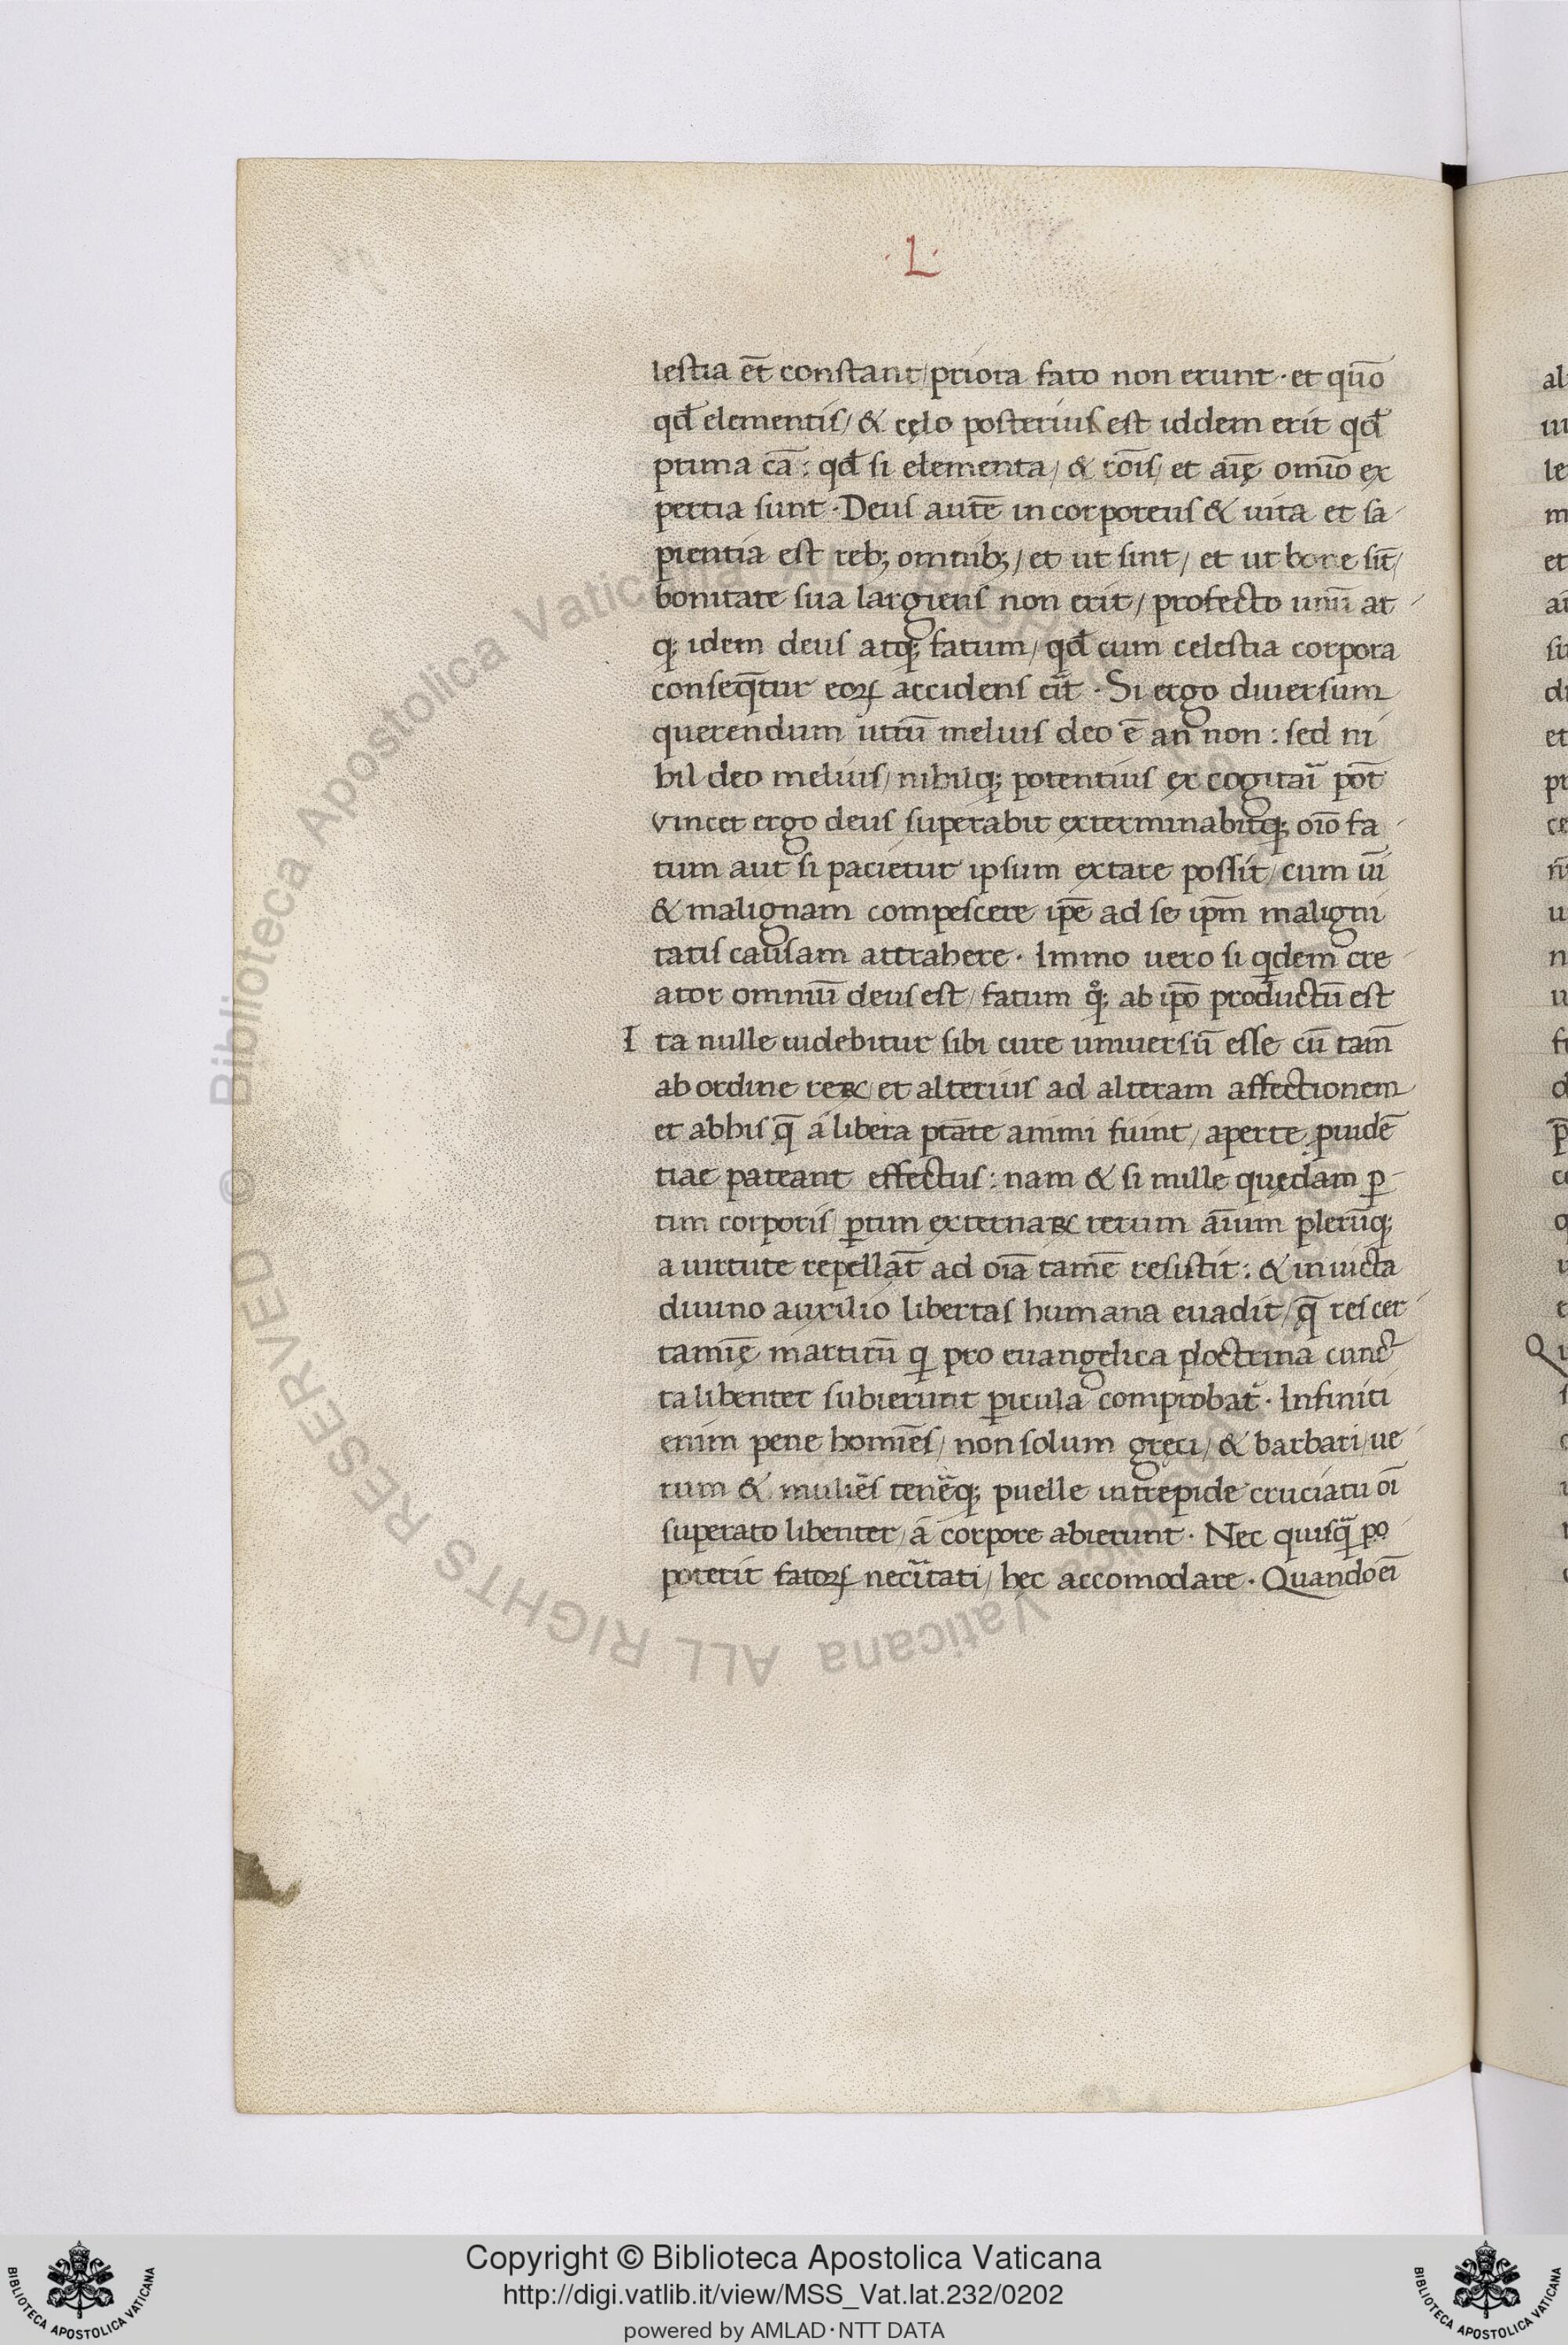 ·L·
lestia et̄ constant/ priora fato non erunt · et quō
qđ elementis/ & cęlo posterius est iddem erit qđ
prima cā : qđ si elementa/ & rōis/ et aīę omīo ex
pertia sunt · Deus autē in corporeus & uita et sa
pientia est reb; omnib;/ et ut sint/ et ut bone sīt/
bonitate sua largiens non erit/ profecto unū at
q; idem deus atq; fatum/ qđ cum celestia corpora
conseq̄tur eoꝝ accidens erit · Si ergo diuersum
querendum utrū melius deo ē an non : sed ni
hil deo melius/ nihilq; potentius ex cogitari pōt
vincet ergo deus superabit exterminabitq; oīo fa
tum aut si pacietur ipsum extare possit/ cum
& malignam compescere ip̄e ad se ip̄m maligni
tatis causam attrahere · Immo uero si qdem cre
ator omniū deus est/ fatum q; ab ip̄o productū est
Ita nulle uidebitur sibi cure uniuersū esse cū tam̄
ab ordine reꝝ/ et alterius ad alteram affectionem
et abhis q̄ á libera p̄tate animi fiunt/ aperte ꝓuidē
tiae pateant effectus : nam & si mille quędam ꝑ
tim corporis/ ꝑtim externaꝝ rerum aīum plerūq;
a uirtute repellāt ad oīa tamē resistit : & inuicta
diuino auxilio libertas humana euadit/ q̄ res cer
tamīę martirū qi pro euangelica doctrina cunc
ta libenter subierunt ꝑicula comprobat · Infiniti
enim pene homīes/ non solum gręci/ & barbari/ ue
rum & muliēs tenēq; puelle intrepide cruciatu oī
superato libenter/ á corpore abierunt · Nec quisq̄ po
poterit fatoꝝ necītati/ hęc accomodare · Quando eī
Copyright © Biblioteca Apostolica Vaticana
http://digi.vatlib.it/view/MSS_Vat.lat.232/0202
powered by AMLAD·NTT DATA
BIBLIOTECA APOSTOLICA VATICANA
BIBLIOTECA APOSTOLICA VATICANA
© Biblioteca Apostolica Vaticana ALL RIGHTS RESERVED